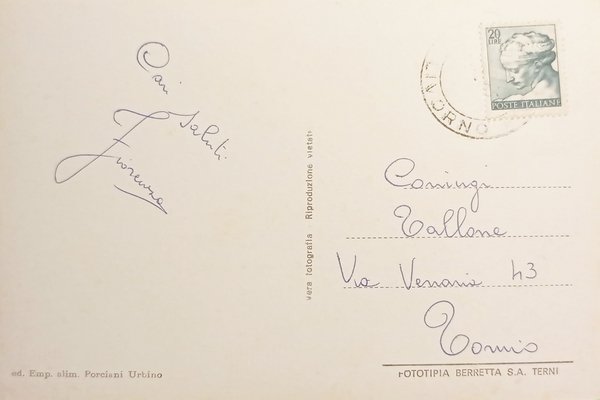 Cari
Saluti
Fiorenza
20
LIRE
POSTE ITALIANE
vera fotografia Riproduzione vietata
Coniugi
Tallone
Via Venaria 43
Torino
ed. Emp. alim. Porciani Urbino
FOTOTIPIA BERRETTA S.A. TERNI